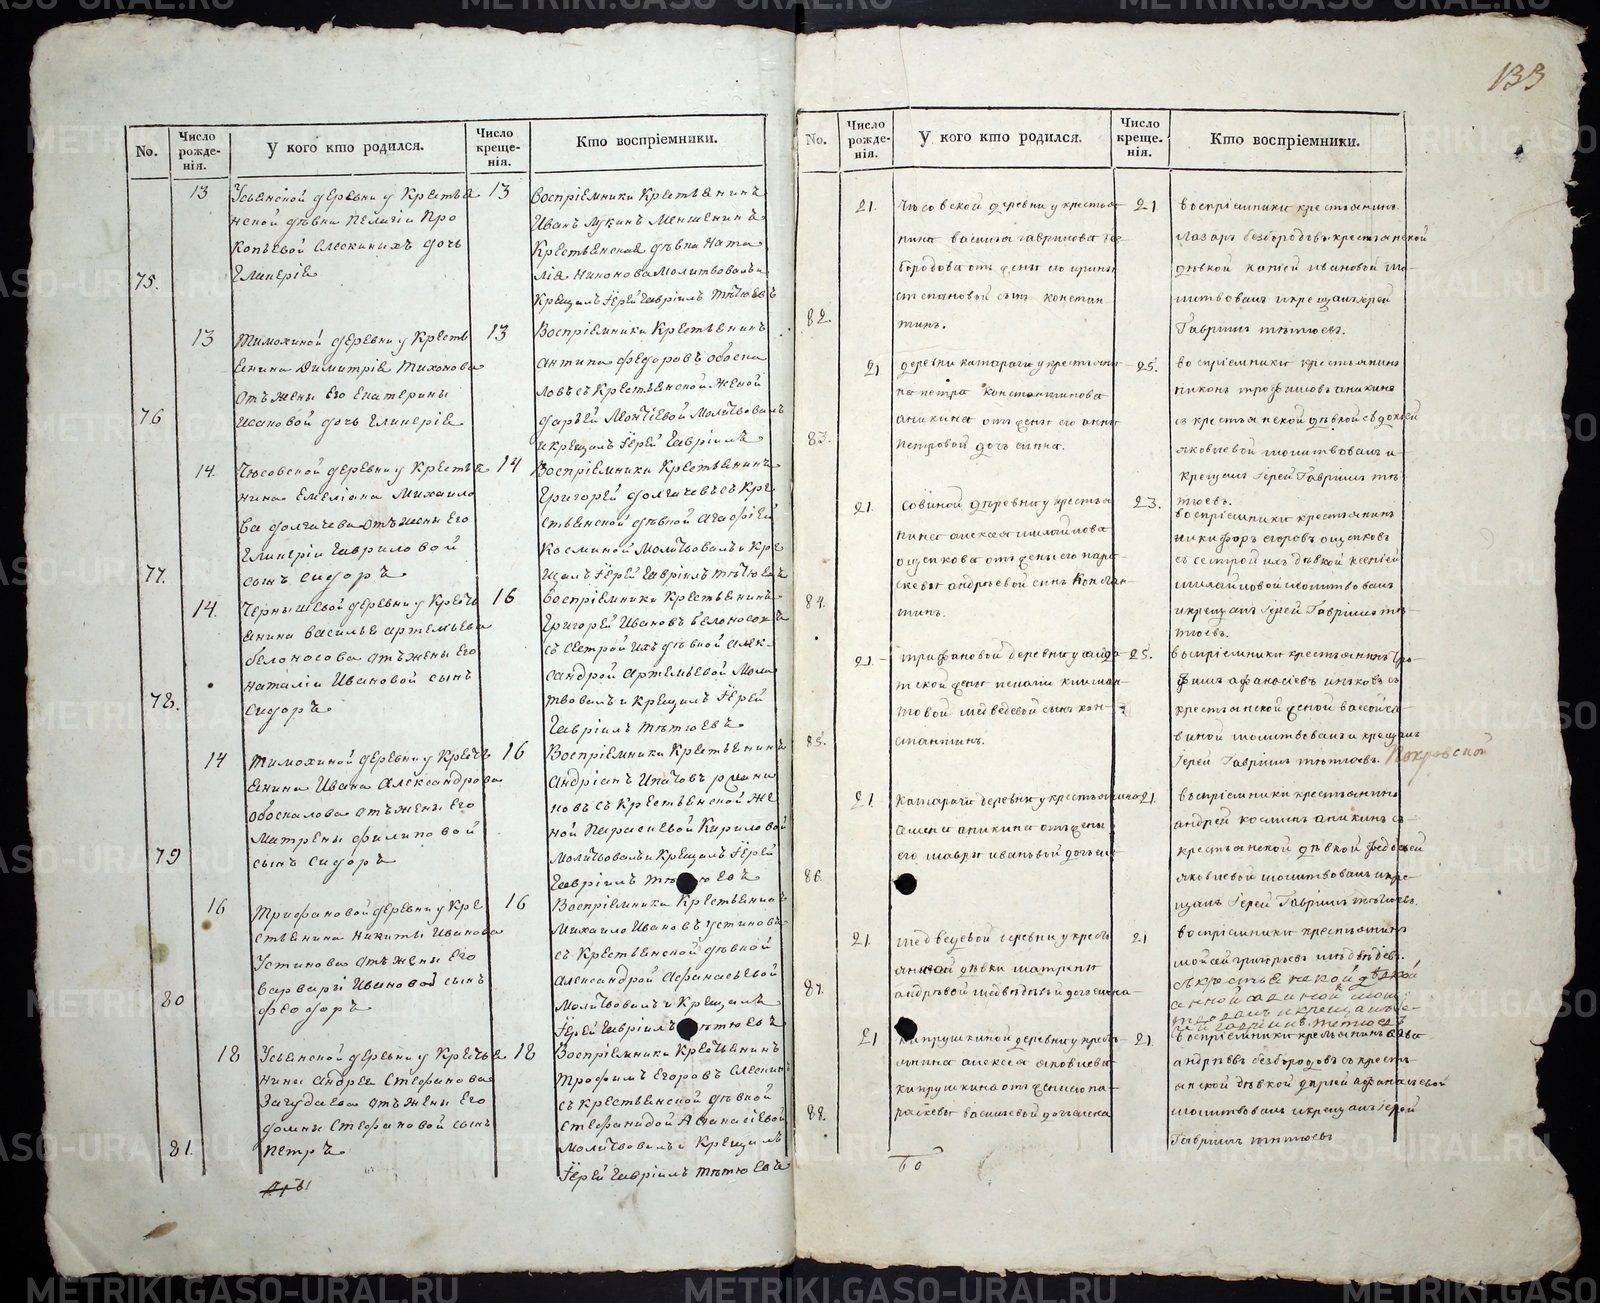 133
No.
Число рожде- нія.
У кого кто родился.
Число креще- нія.
Кто воспріемники.
13
Усьенской деревни у Крестья
13
нской девки Пелагіи Про
копьевой Слескиныхъ дочь
75.
Гликерія
Воспріемники Крестьенинъ
Иванъ Лукинъ Меншенинъ
Крестьенская девка Ната
лія Никонова Молитвовалъ и
Крещалъ Іерей Гавріилъ Тетюевъ
13
Тимохиной деревни у Кресть
13
енина Димитріе Тихонова
отъ жены Его Екатерины
76
Исаковой дочь Гликеріе
Воспріемники Крестьенинъ
Антипа Федоровъ Обоска
ловъ съ Крестьенской женой
Дарьей Леонтіевой Молитвовалъ
и крещалъ Іерей Гавріилъ
14.
Чюсовской деревни у Крестье
14
нина Емеліана Михаило
ва Долгачева отъ жены Его
Гликеріи Гавриловой
77.
сынъ Сидоръ
Воспріемники Крестьенинъ
Григорей Долгачевъ съ Кре
стьенской девкой Агафіей
Косминой Молитвовалъ и Кре
щалъ Іерей Гавріилъ Тетюевъ
14.
Чернышевой деревни у Кресть
16
енина Василье Артемьева
Белоносова отъ жены Его
Наталіи Ивановой сынъ
78.
Сидоръ
Воспріемники Крестьенинъ
Григорей Ивановъ Белоносовъ
съ сестрой ихъ девкой Алек
сандрой Артемьевой Моли
твовалъ и Крещалъ Іерей
Гавріилъ Тетюевъ
14
Тимохиной деревни у Кресть
16
енина Ивана Александрова
Обоскалова отъ жены Его
Матрены Филиповой
79
сынъ Сидоръ
Воспріемники Крестьенинъ
Андріанъ Ипатовъ
новъ съ Крестьенской же
ной Параскевой Кириловой
Молитвовалъ и Крещалъ Іерей
Гавріилъ Тетюевъ
16
Трифановой деревни у Кре
16
стьенина Никиты Иванова
Устинова отъ жены Его
Варвары Ивановой сынъ
80
Феодоръ
Воспріемники Крестьенинъ
Михаило Ивановъ Устиновъ
съ Крестьенской девкой
Александрой Афанасьевой
Молитвовалъ и Крещалъ
Іерей Гавріилъ Тетюевъ
18
Усьенской деревни у Крестье
18
нина Андрея Стефанова
Загудаева отъ жены Его
Домны Стефановой сынъ
81.
Петръ
Воспріемники Крестьенинъ
Трофимъ Егоровъ Слескинъ
съ Крестьенской девкой
Стефанидой Афанасіевой
Молитвовалъ и Крещалъ
Іерей Гавріилъ Тетюевъ
No.
Число рожде- нія.
У кого кто родился.
Число креще- нія.
Кто воспріемники.
21.
Чюсовской деревни у крестья
21.
нина Василья Гаврилова Без
бородова отъ жены его Ирины
Степановой сынъ Констан
82.
тинъ.
воспріемники крестьянинъ
Лазарь Безбородовъ крестьянской
девкой Ивановой мо
литвовалъ и крещалъ Іерей
Гавріилъ Тетюевъ.
21
деревни Катараги у крестьяни
25.
на Петра Константинова
Аникина отъ жены его Анны
83.
Петровой дочь Елена.
воспріемники крестьянинъ
Никонъ Трофимовъ Аникинъ
съ крестьянской девкой Евдокией
Яковлевой молитвовалъ и
крещалъ Іерей Гавріилъ Те
тюевъ.
21.
Совиной деревни у крестья
23.
нина Алексея Михайлова
Ощепкова отъ жены его Пара
скевы Андреевой сынъ Констан
84.
тинъ.
воспріемники крестьянинъ
Никифоръ Егоровъ Ощепковъ
съ сестрой ихъ девкой Ксеніей
Михайловой молитвовалъ
и крещалъ Іерей Гавріилъ Те
тюевъ.
21.
Трифановой деревни у солда
25.
тской жены Климан
товой Медведевой сынъ Кон
85.
стантинъ.
воспріемники крестьянинъ Тро
фимъ Афанасіевъ съ
крестьянской женой
молитвовалъ и крещалъ
Іерей Гавріилъ Тетюевъ. Покровской
21.
Катараги деревни у крестьянина
21.
Аникина отъ жены
его Мавры Ивановой дочь Еле
86.
воспріемники крестьянинъ
Андрей Косминъ Аникинъ съ
крестьянской девкой Федосьей
Яковлевой молитвовалъ и кре
щалъ Іерей Гавріилъ Тетюевъ.
21.
Медведевой деревни у кресть
21
янской девки Матрены
87.
Андреевой Медведевой дочь Елена
воспріемники крестьянинъ
Мойсей Григорьевъ Медведевъ.
съ крестьенской девкой
21
Кипрушкиной деревни у кресть
21.
янина Алексея Яковлева
Кипрушкина отъ жены его Па
88.
раскевы Васильевой дочь Елена
воспріемники крестьянинъ
Андреевъ Безбородовъ съ кресть
янской девкой Дарьей Афанасьевой
молитвовалъ и крещалъ Іерей
Гавріилъ Тетюевъ
METRIKI.GASO-URAL.RU